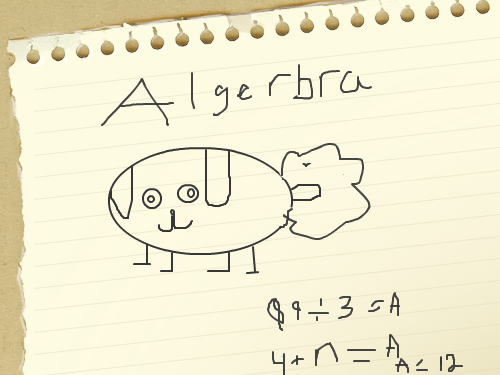 Algerbra
9 ÷ 3 = A
4 + n = A
A = 12